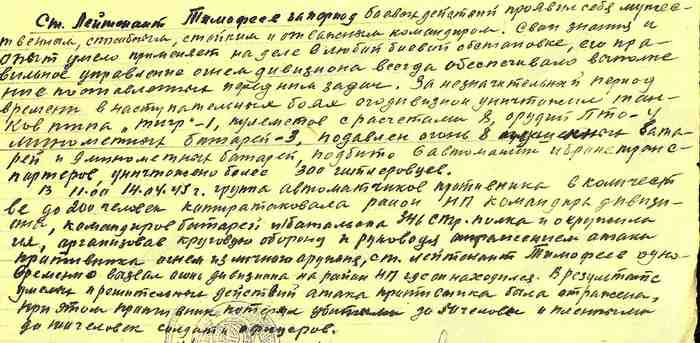 Ст. Лейтенант Тимофеев за период боевых действий проявил себя мужес-
твенным, способным, стойким и отважным командиром. Свои знания и
опыт умело применяет на деле в любой боевой обстановке, его пра-
вильное управление огнем дивизиона всегда обеспечивало выполне
ние поставленных перед ним задач. За незначительный период
времени в наступательных боях его дивизион уничтожил тан-
ков типа „тигр"-1, пулеметов с расчетами 8, орудий ПТО-4
минометных батарей-3, подавлен огонь 8 бата-
рей и 9 минометных батарей, подбито 6 автомашин и бронетранс-
портеров, уничтожено более 300 гитлеровцев.
В 11.00 14.04.45г. группа автоматчиков противника в количест
ве до 200 человек контратаковала район НП командира дивизи-
она, командиров батарей и батальона стр. полка и окружила
их, организовав круговую оборону и руководя отражением атаки
противника огнем из личного оружия, ст. лейтенант Тимофеев одно-
временно вызвал огонь дивизиона на район НП где он находился. В результате
умелых и решительных действий атака противника была отражена,
при этом противник потерял убитыми до человек и пленными
до человек солдат и офицеров.